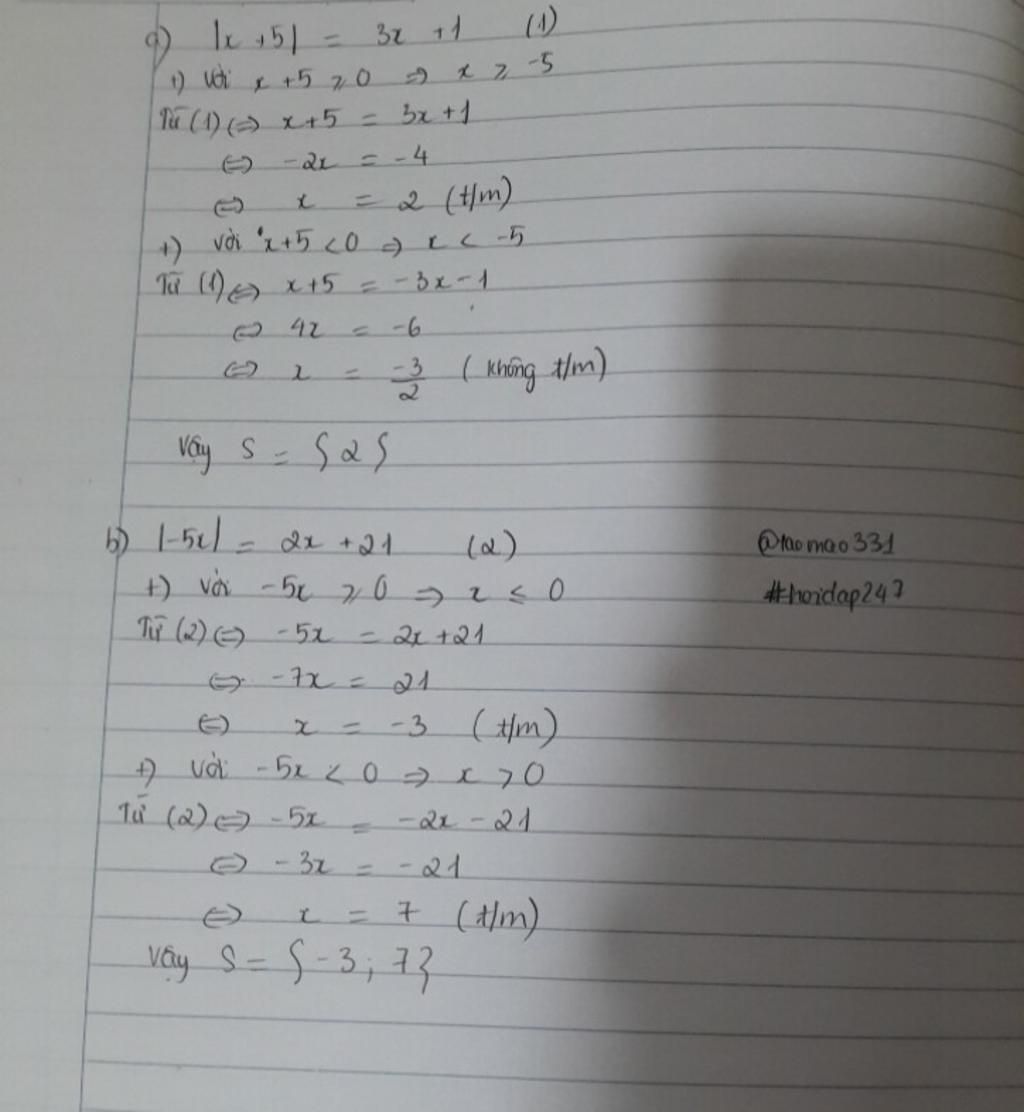 a) |x+5| = 3x + 1 (1)
+) Với x+5 ⩾ 0 ⇒ x ⩾ -5
Từ (1) ⇔ x+5 = 3x+1
⇔ -2x = -4
⇔ x = 2 (t/m)
+) Với x+5 < 0 ⇒ x < -5
Từ (1) ⇔ x+5 = -3x-1
⇔ 4x = -6
⇔ x = -3/2 (không t/m)
Vậy S = {2}
b) |-5x| = 2x + 21 (2) @taomao331
+) Với -5x ⩾ 0 ⇒ x ≤ 0 #hoidap247
Từ (2) ⇔ -5x = 2x+21
⇔ -7x = 21
⇔ x = -3 (t/m)
+) Với -5x < 0 ⇒ x > 0
Từ (2) ⇔ -5x = -2x - 21
⇔ -3x = -21
⇔ x = 7 (t/m)
Vậy S = {-3; 7}